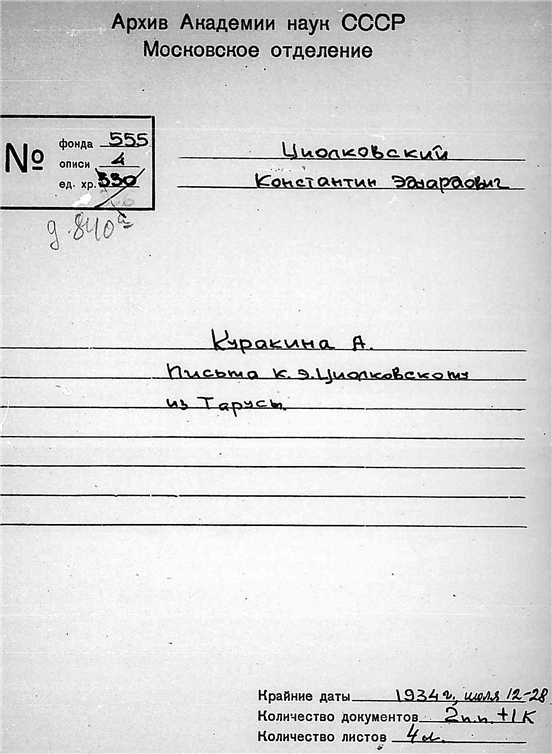 Архив Академии наук СССР
Московское отделение
№
фонда 555
описи 4
ед. хр. 330
д. 840а
Циолковский
Константин Эдуардович
Куракина А.
Письма К.Э. Циолковскому
из Тарусы.
Крайние даты 1934 г, июля 12-28
Количество документов 2 п.п. + 1 К
Количество листов 4 л.